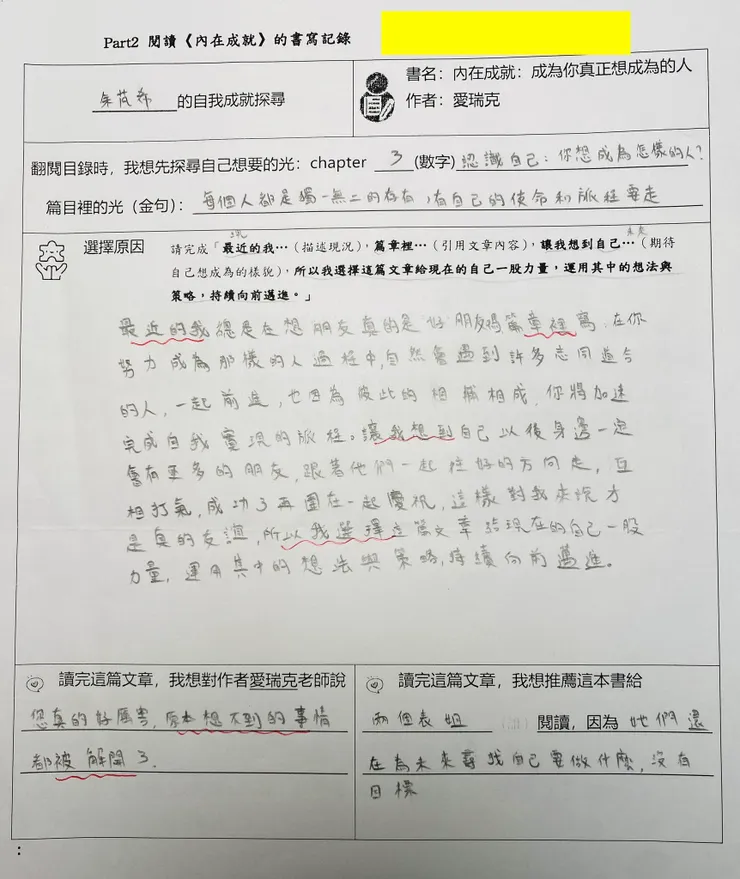 Part2 閱讀《內在成就》的書寫記錄
的自我成就探尋
書名：內在成就：成為你真正想成為的人
作者：愛瑞克
翻閱目錄時，我想先探尋自己想要的光：chapter 3 (數字) 認識自己：你想成為怎樣的人？
篇目裡的光（金句）：每個人都是獨一無二的存有，有自己的使命和脈程要走
選擇原因
請完成「最近的我…（描述現況），篇章裡…（引用文章內容），讓我想到自己…（期待
未來
自己想成為的樣貌），所以我選擇這篇文章給現在的自己一股力量，運用其中的想法與
策略，持續向前邁進。」
最近的我總是在想朋友真的是好朋友嗎篇章裡寫，在你
努力成為那樣的人過程中，自然會遇到許多志同道合
的人，一起前進，也因為彼此的相輔相成，你將加速
完成自我實現的脈程。讓我想到自己以後身邊一定
會有更多的朋友，跟著他們一起往好的方向走，互
相打氣，成功了再圍在一起慶祝，這樣對我來說才
是真的友誼，所以我選擇這篇文章給現在的自己一股
力量，運用其中的想法與策略，持續向前邁進。
讀完這篇文章，我想對作者愛瑞克老師說
您真的好厲害，原本想不到的事情
都被解開了.
讀完這篇文章，我想推薦這本書給
兩個表姐 閱讀，因為她們還
在為未來尋找自己要做什麼，沒有
目標
：